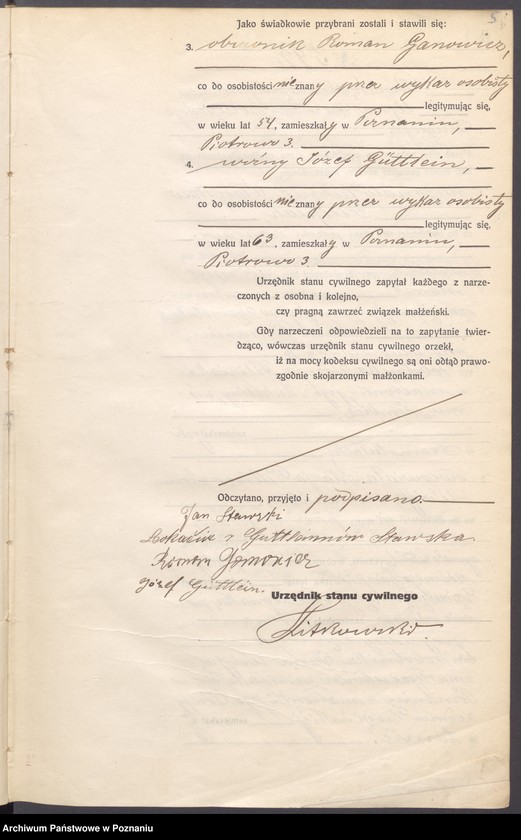 5
Jako świadkowie przybrani zostali i stawili się:
3. Roman Ganowicz,
co do osobistości nie znany przez wykaz osobisty
legitymując się,
w wieku lat 54, zamieszkały w Poznaniu,
Piotrowo 3.
4. woźny Józef Güttlein,
co do osobistości nie znany przez wykaz osobisty
legitymując się,
w wieku lat 63, zamieszkały w Poznaniu,
Piotrowo 3
Urzędnik stanu cywilnego zapytał każdego z narze-
czonych z osobna i kolejno,
czy pragną zawrzeć związek małżeński.
Gdy narzeczeni odpowiedzieli na to zapytanie twier-
dząco, wówczas urzędnik stanu cywilnego orzekł,
iż na mocy kodeksu cywilnego są oni odtąd prawo-
zgodnie skojarzonymi małżonkami.
Odczytano, przyjęto i podpisano.
Jan Stawski
z Stawska
Roman
Józef Güttlein.
Urzędnik stanu cywilnego
Archiwum Państwowe w Poznaniu